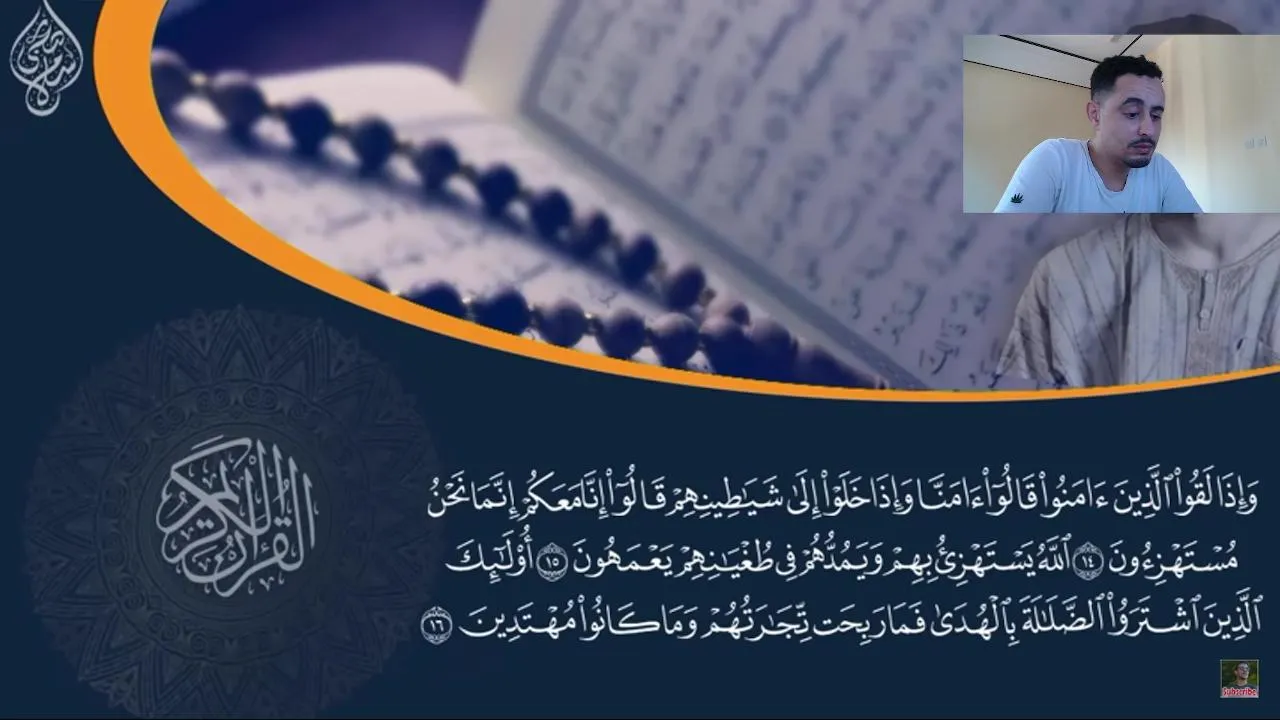 وَإِذَا لَقُوا۟ ٱلَّذِينَ ءَامَنُوا۟ قَالُوٓا۟ ءَامَنَّا وَإِذَا خَلَوْا۟ إِلَىٰ شَيَـٰطِينِهِمْ قَالُوٓا۟ إِنَّا مَعَكُمْ إِنَّمَا نَحْنُ
مُسْتَهْزِءُونَ ١٤ ٱللَّهُ يَسْتَهْزِئُ بِهِمْ وَيَمُدُّهُمْ فِى طُغْيَـٰنِهِمْ يَعْمَهُونَ ١٥ أُو۟لَـٰٓئِكَ
ٱلَّذِينَ ٱشْتَرَوُا۟ ٱلضَّلَـٰلَةَ بِٱلْهُدَىٰ فَمَا رَبِحَت تِّجَـٰرَتُهُمْ وَمَا كَانُوا۟ مُهْتَدِينَ ١٦
القرآن الكريم
Subscribe